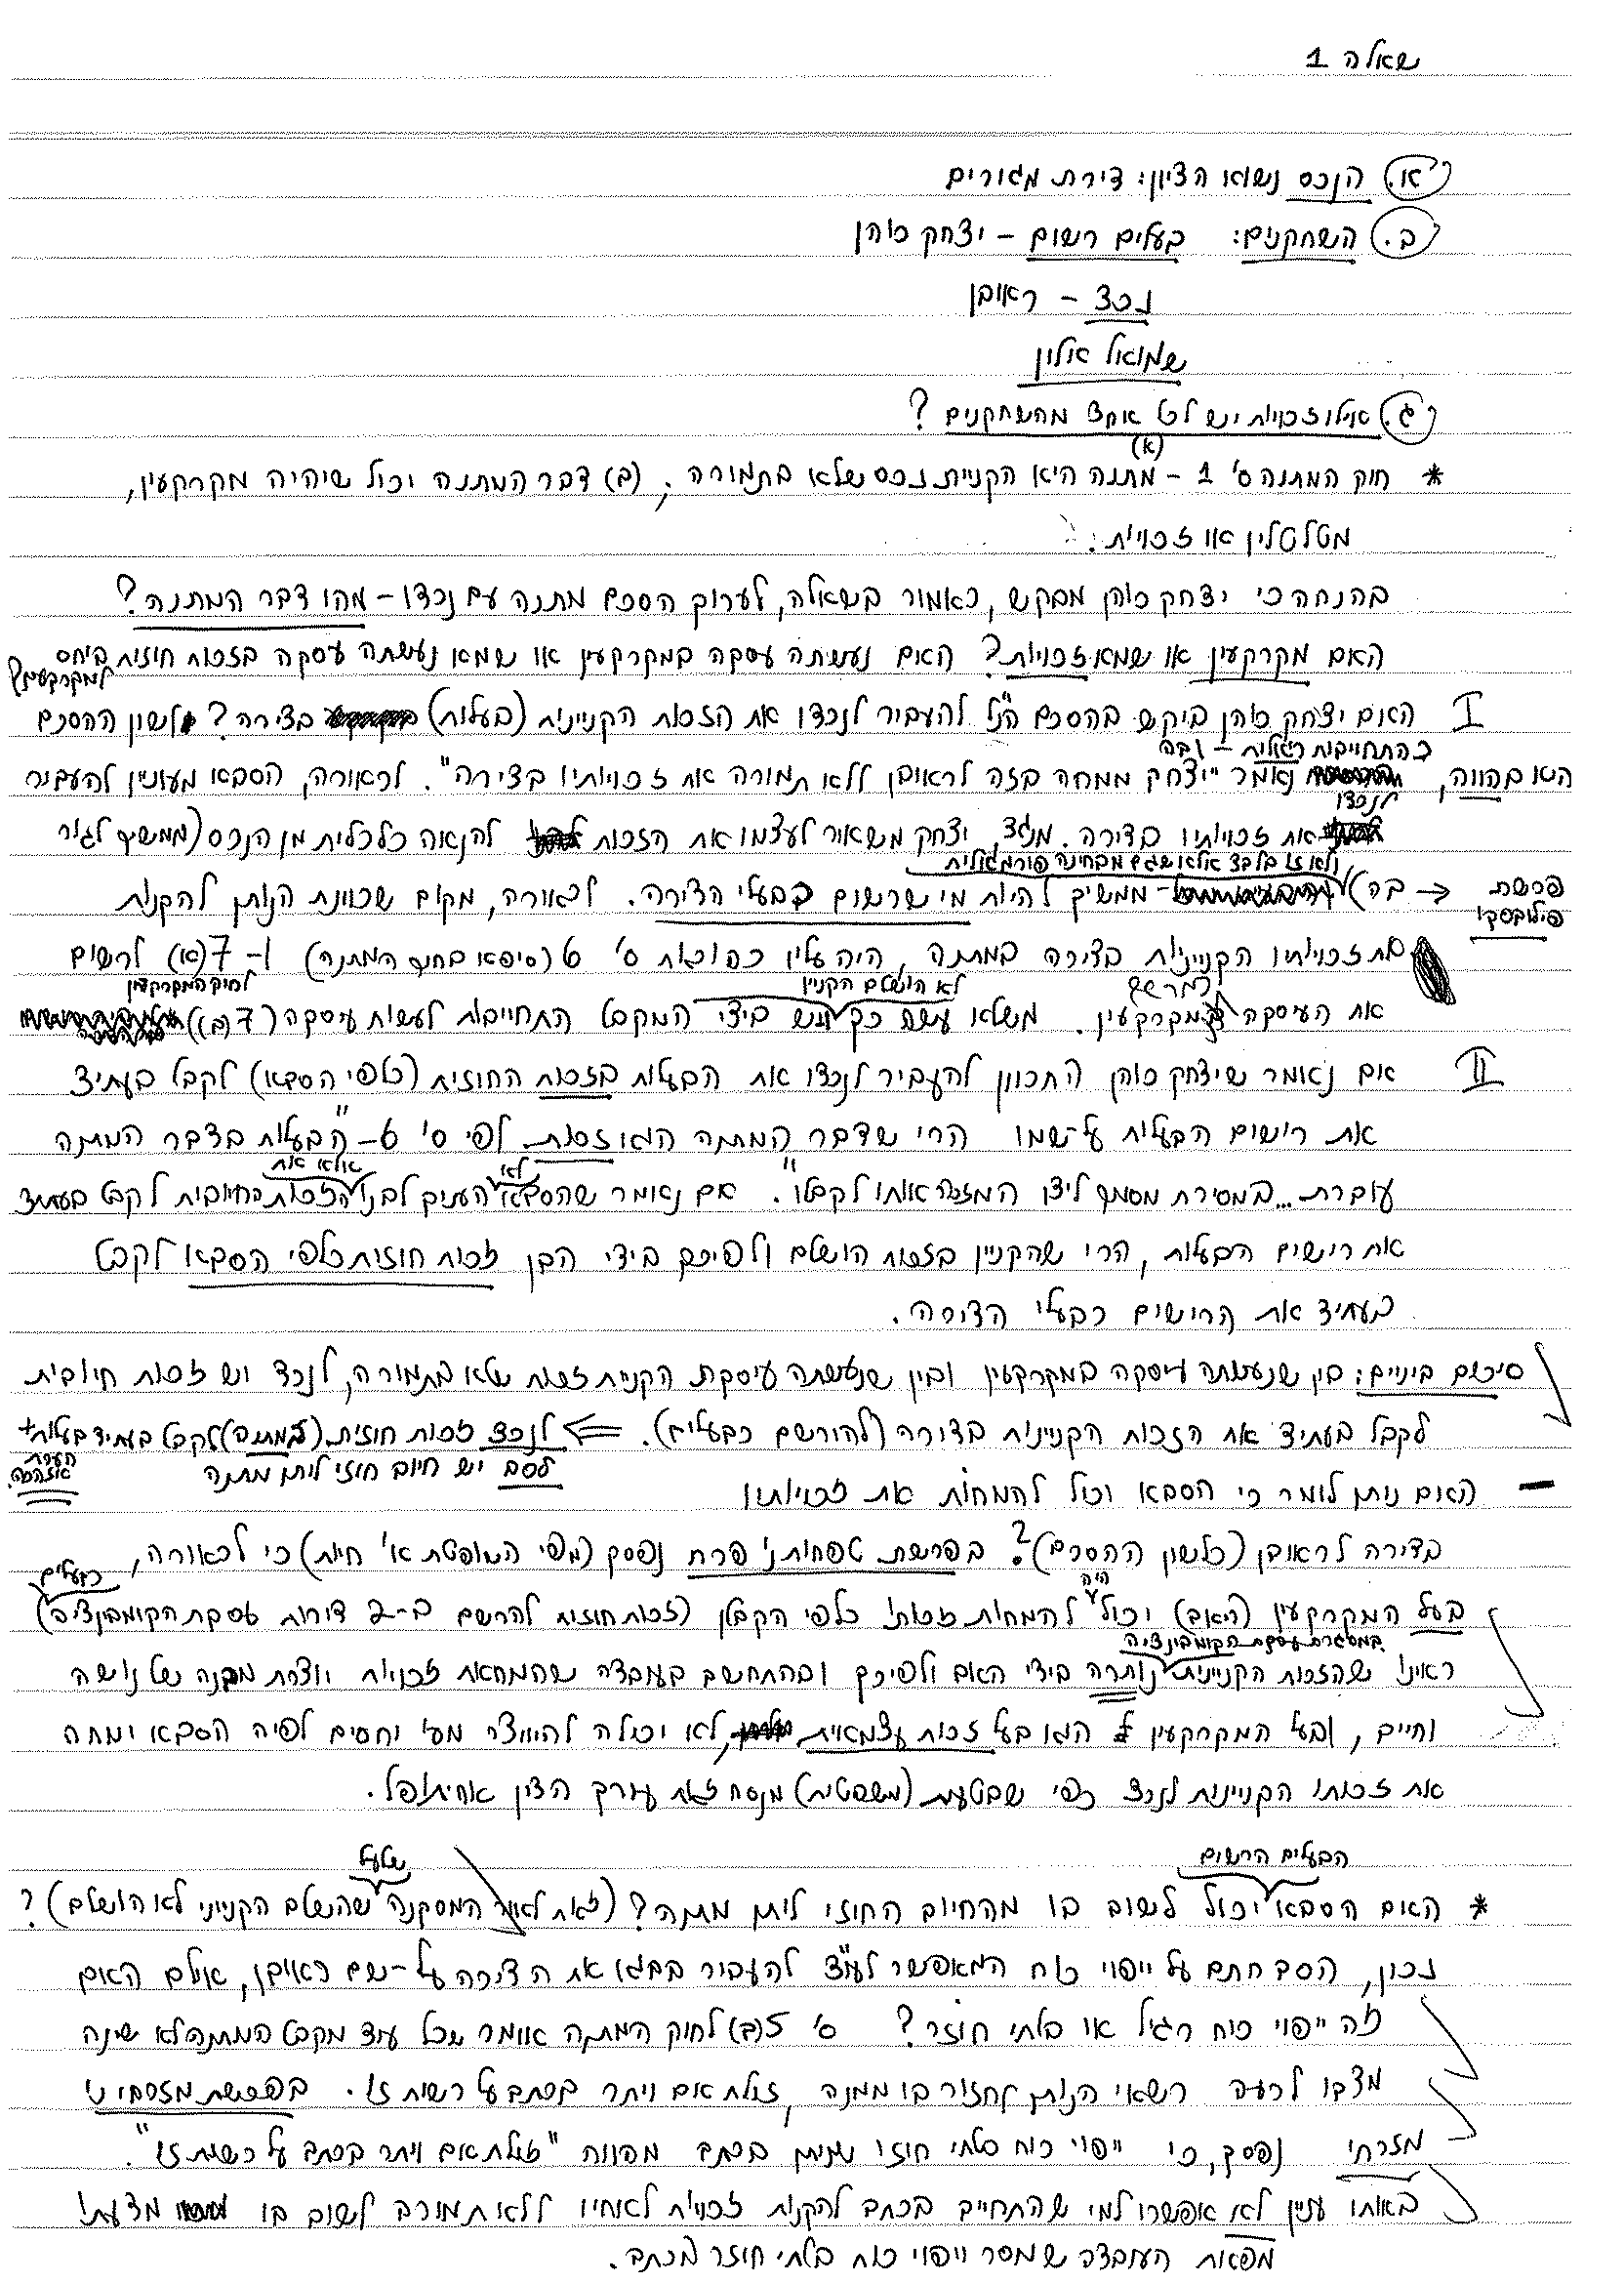 שאלה 1
א. הנכס נשוא הדיון: דירת מגורים
ב. השחקנים: בעלים רשום – יצחק כוהן
נכד – ראובן
שמואל אילון
ג. אילו זכויות יש לכל אחד מהשחקנים?
* חוק המתנה ס' 1 – (א) מתנה היא הקניית נכס שלא בתמורה; (ב) דבר המתנה יכול שיהיה מקרקעין,
מטלטלין או זכויות.
בהנחה כי יצחק כוהן מבקש, כאמור בשאלה, לערוך הסכם מתנה עם נכדו – מהו דבר המתנה?
האם מקרקעין או שמא זכויות? האם נעשתה עסקה במקרקעין או שמא נעשתה עסקה בזכות חוזית ביחס למקרקעין?
I האם יצחק כוהן ביקש בהסכם הנ"ל להעביר לנכדו את הזכות הקניינית (בעלות) בדירה? לשון ההסכם
היא בהווה, כהתחייבות רגילית – ובה נאמר "יצחק ממחה בזה לראובן ללא תמורה את זכויותיו בדירה". לכאורה, הסבא מעוניין להעביר
לנכדו את זכויותיו בדירה. מנגד, יצחק משאיר לעצמו את הזכות להנאה כלכלית מן הנכס (ממשיך לגור
פרשת פילובסקי ← בה) ולא זו בלבד אלא שגם מבחינה פורמאלית – ממשיך להיות מי שרשום כבעלי הדירה. לכאורה, מקום שכוונת הנותן להקנות
את זכויותיו הקנייניות בדירה במתנה, היה עליו כהוראת ס' 6 (סיפא בחוק המתנה) ו- 7(א) לחוק המקרקעין לרשום
את העיסקה במרשם המקרקעין. משלא עשה כך לא הושלם הקניין ויש בידי המקבל התחייבות לעשות עיסקה (7(ב))
II אם נאמר שיצחק כוהן התכוון להעביר לנכדו את הבעלות בזכות החוזית (כלפי הסבא) לקבל בעתיד
את רישום הבעלות על-שמו הרי שדבר המתנה הוא זכות. לפי ס' 6 – "הבעלות בדבר המתנה
עוברת... במסירת מסמך לידו המזכה אותו לקבלו". אם נאמר שהסבא לא העניק לבנו אלא את הזכות החיובית לקבל בעתיד
את רישום הבעלות, הרי שהקניין בזכות הושלם ולפיכך בידי הבן זכות חוזית כלפי הסבא לקבל
בעתיד את הרישום כבעלי הדירה.
סיכום ביניים: בין שנעשתה עיסקה במקרקעין ובין שנעשתה עיסקת הקניית זכות שלא בתמורה, לנכד יש זכות חיובית
לקבל בעתיד את הזכות הקניינית בדירה (להירשם כבעלים). ⇐ לנכד זכות חוזית (במתנה) לקבל בעתיד בעלות + הערת אזהרה.
לסב יש חיוב חוזי ליתן מתנה
– האם ניתן לומר כי הסבא יכול להמחות את זכויותיו
בדירה לראובן (כלשון ההסכם)? בפרשת טפחות נ' פרח נפסק (מפי השופטת א' חיות) כי לכאורה,
בעל המקרקעין (האב) היה יכול להמחות זכותו כלפי הקבלן (זכות חוזית להרשם כבעלים ב-2 דירות עסקת הקומבינציה)
ראינו שהזכות הקניינית במסגרת עסקת הקומבינציה נותרה בידי האב ולפיכך ובהתחשב בעובדה שהמחאת זכויות יוצרת מבנה של נושה
וחייב, ובעל המקרקעין הוא בעל זכות עצמאית, לא יכולה להיווצר מע' יחסים לפיה הסבא ימחה
את זכותו הקניינית לנכד כפי שבטעות (משפטית) מנסח זאת עורך הדין אחיתופל.
* האם הסבא הבעלים הרשום יכול לשוב בו מהחיוב החוזי ליתן מתנה? (זאת לאור המסקנה שלעיל שהשלם הקנייני לא הושלם)?
נכון, הסב חתם על ייפוי כוח המאפשר לעו"ד להעביר בבוא את הדירה על-שם ראובן, אולם האם
זה ייפוי כוח רגיל או בלתי חוזר? ס' 5(ב) לחוק המתנה אומר שכל עוד מקבל המתנה לא שינה
מצבו לרעה רשאי הנותן לחזור בו ממנה, זולת אם ויתר בכתב על רשות זו. בפרשת מזרחי נ'
מזרחי נפסק, כי ייפוי כוח בלתי חוזר שניתן בכתב מהווה "זולת אם ויתר בכתב על רשות זו".
באותו עניין לא אפשרו למי שהתחייב בכתב להקנות זכויות לאחיו ללא תמורה לשוב בו מדעתו
מפאת העובדה שמסר ייפוי כוח בלתי חוזר מכתב.